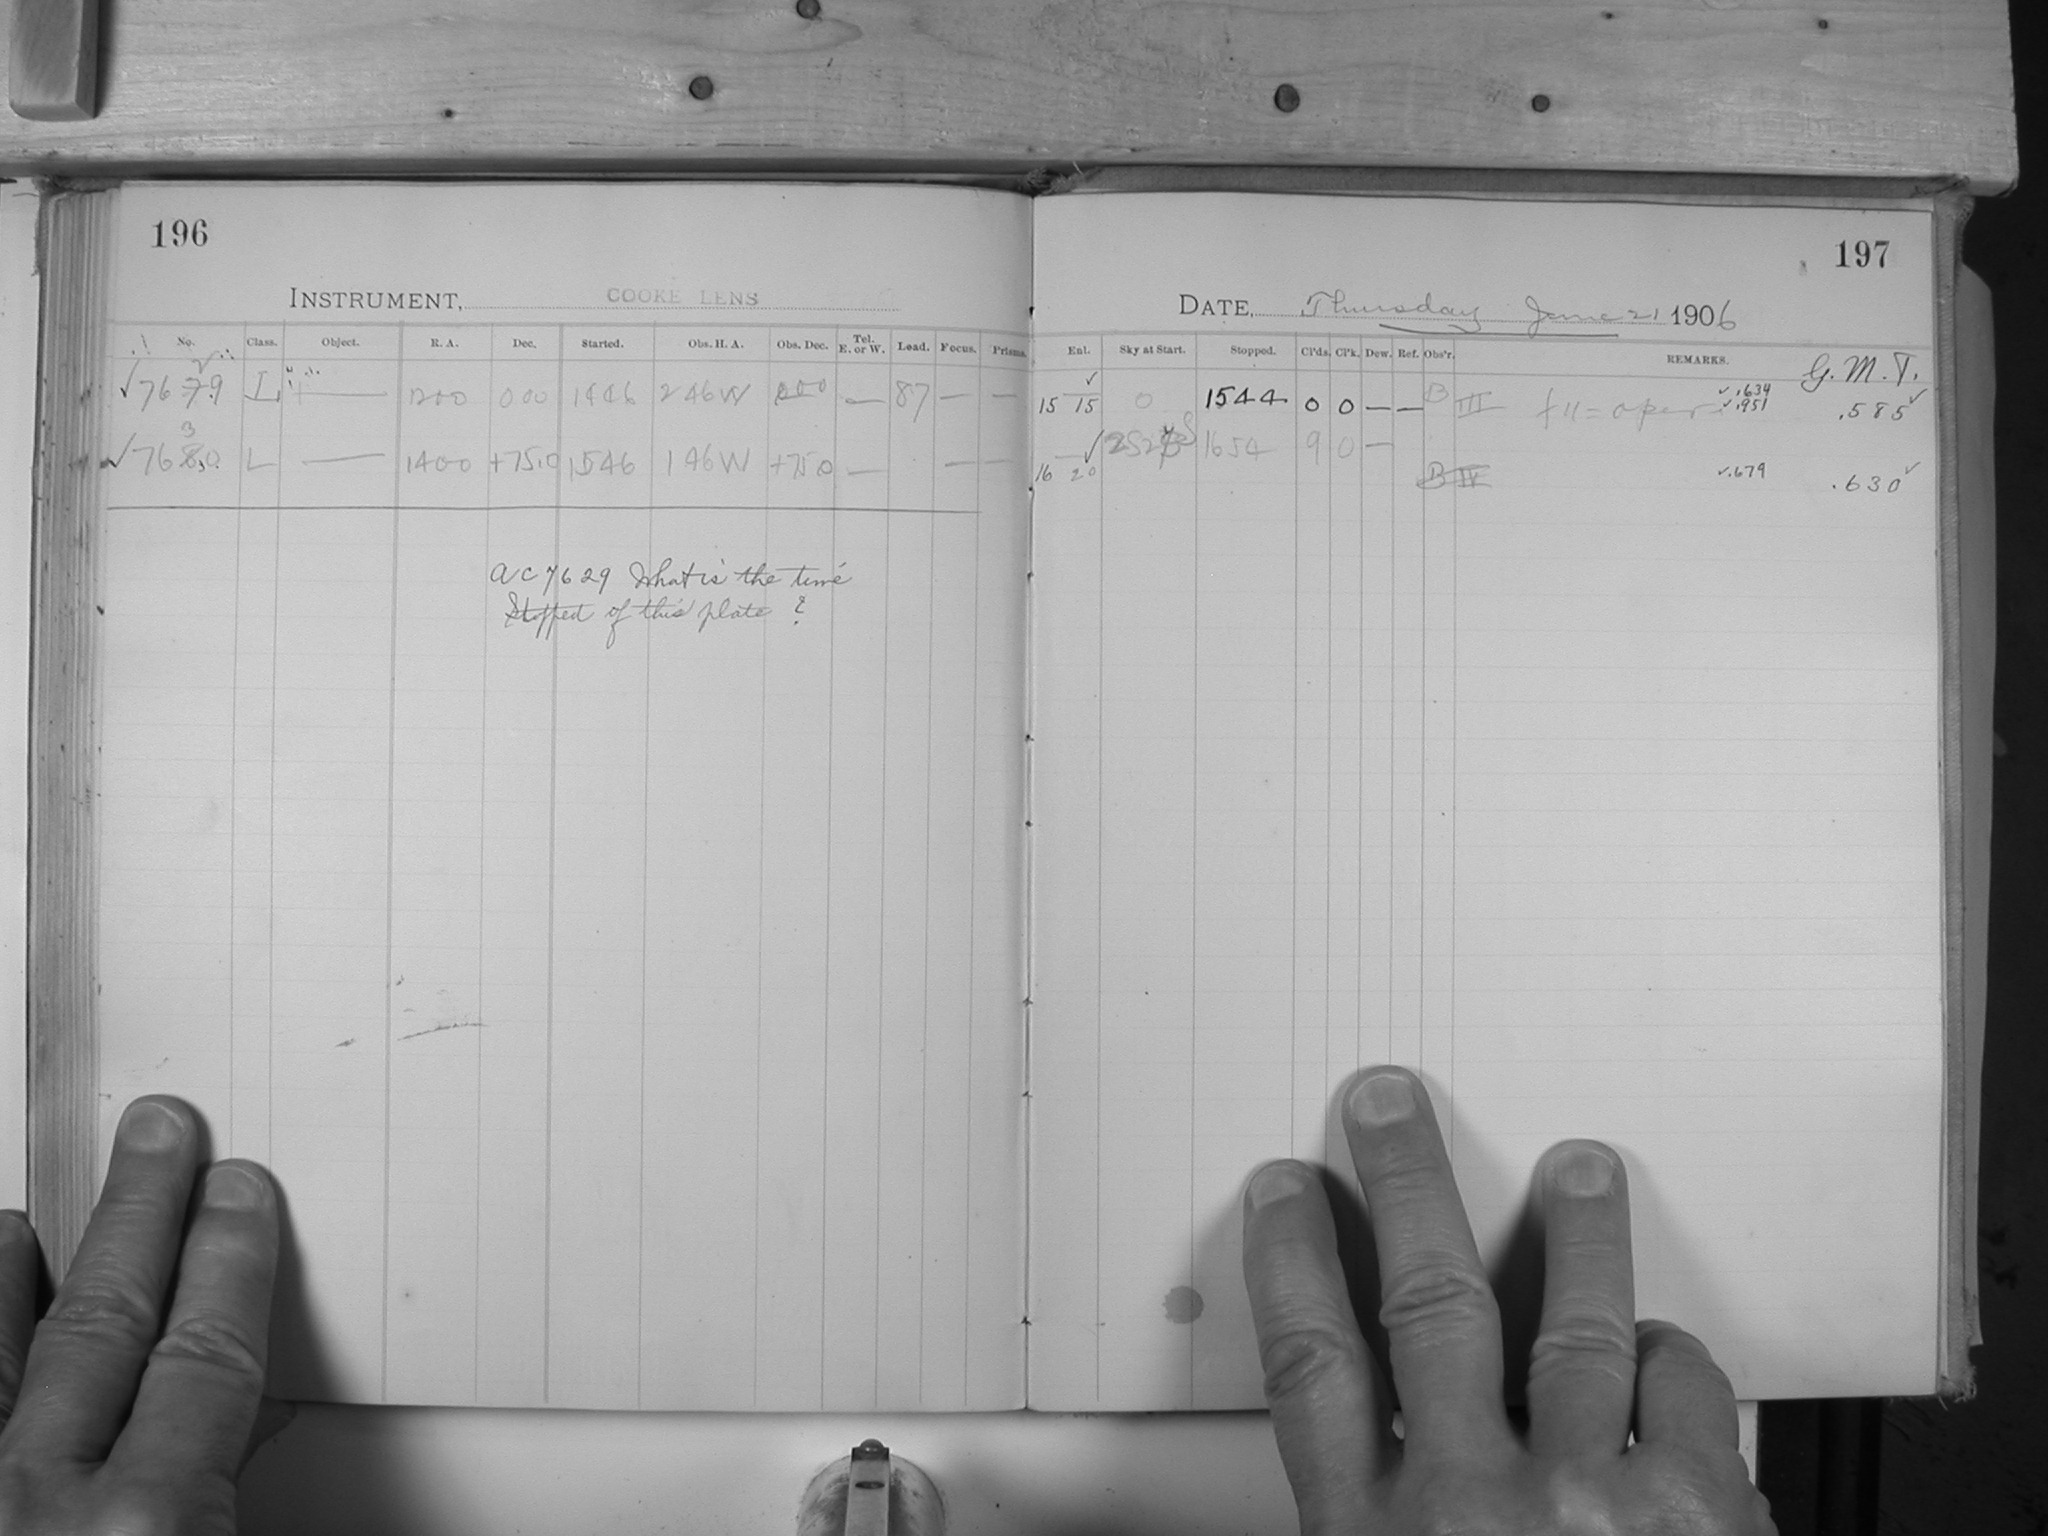 196
INSTRUMENT, COOKE LENS
No. Class. Object. R. A. Dec. Started. Obs. H. A. Obs. Dec. Tel. E. or W. Lead. Focus. Prisms.
√ 76 7.9 L — 1200 000 1446 2 46 W 000 — 87 — —
3
√ 76 8.0 L — 1400 +75.0 1546 1 46 W +750 — — —
ac 7629 What is the time
Stopped of this plate ?
197
DATE, Thursday June 21 1906
Enl. Sky at Start. Stopped. Cl'ds. Cl'k. Dew. Ref. Obs'r. REMARKS. G. M. T.
15 15 0 1544 0 0 — — B III f 11 = oper √ .634 √ .951 .585 √
16 20 √ 1654 9 0 — B IV √ .679 .630 √